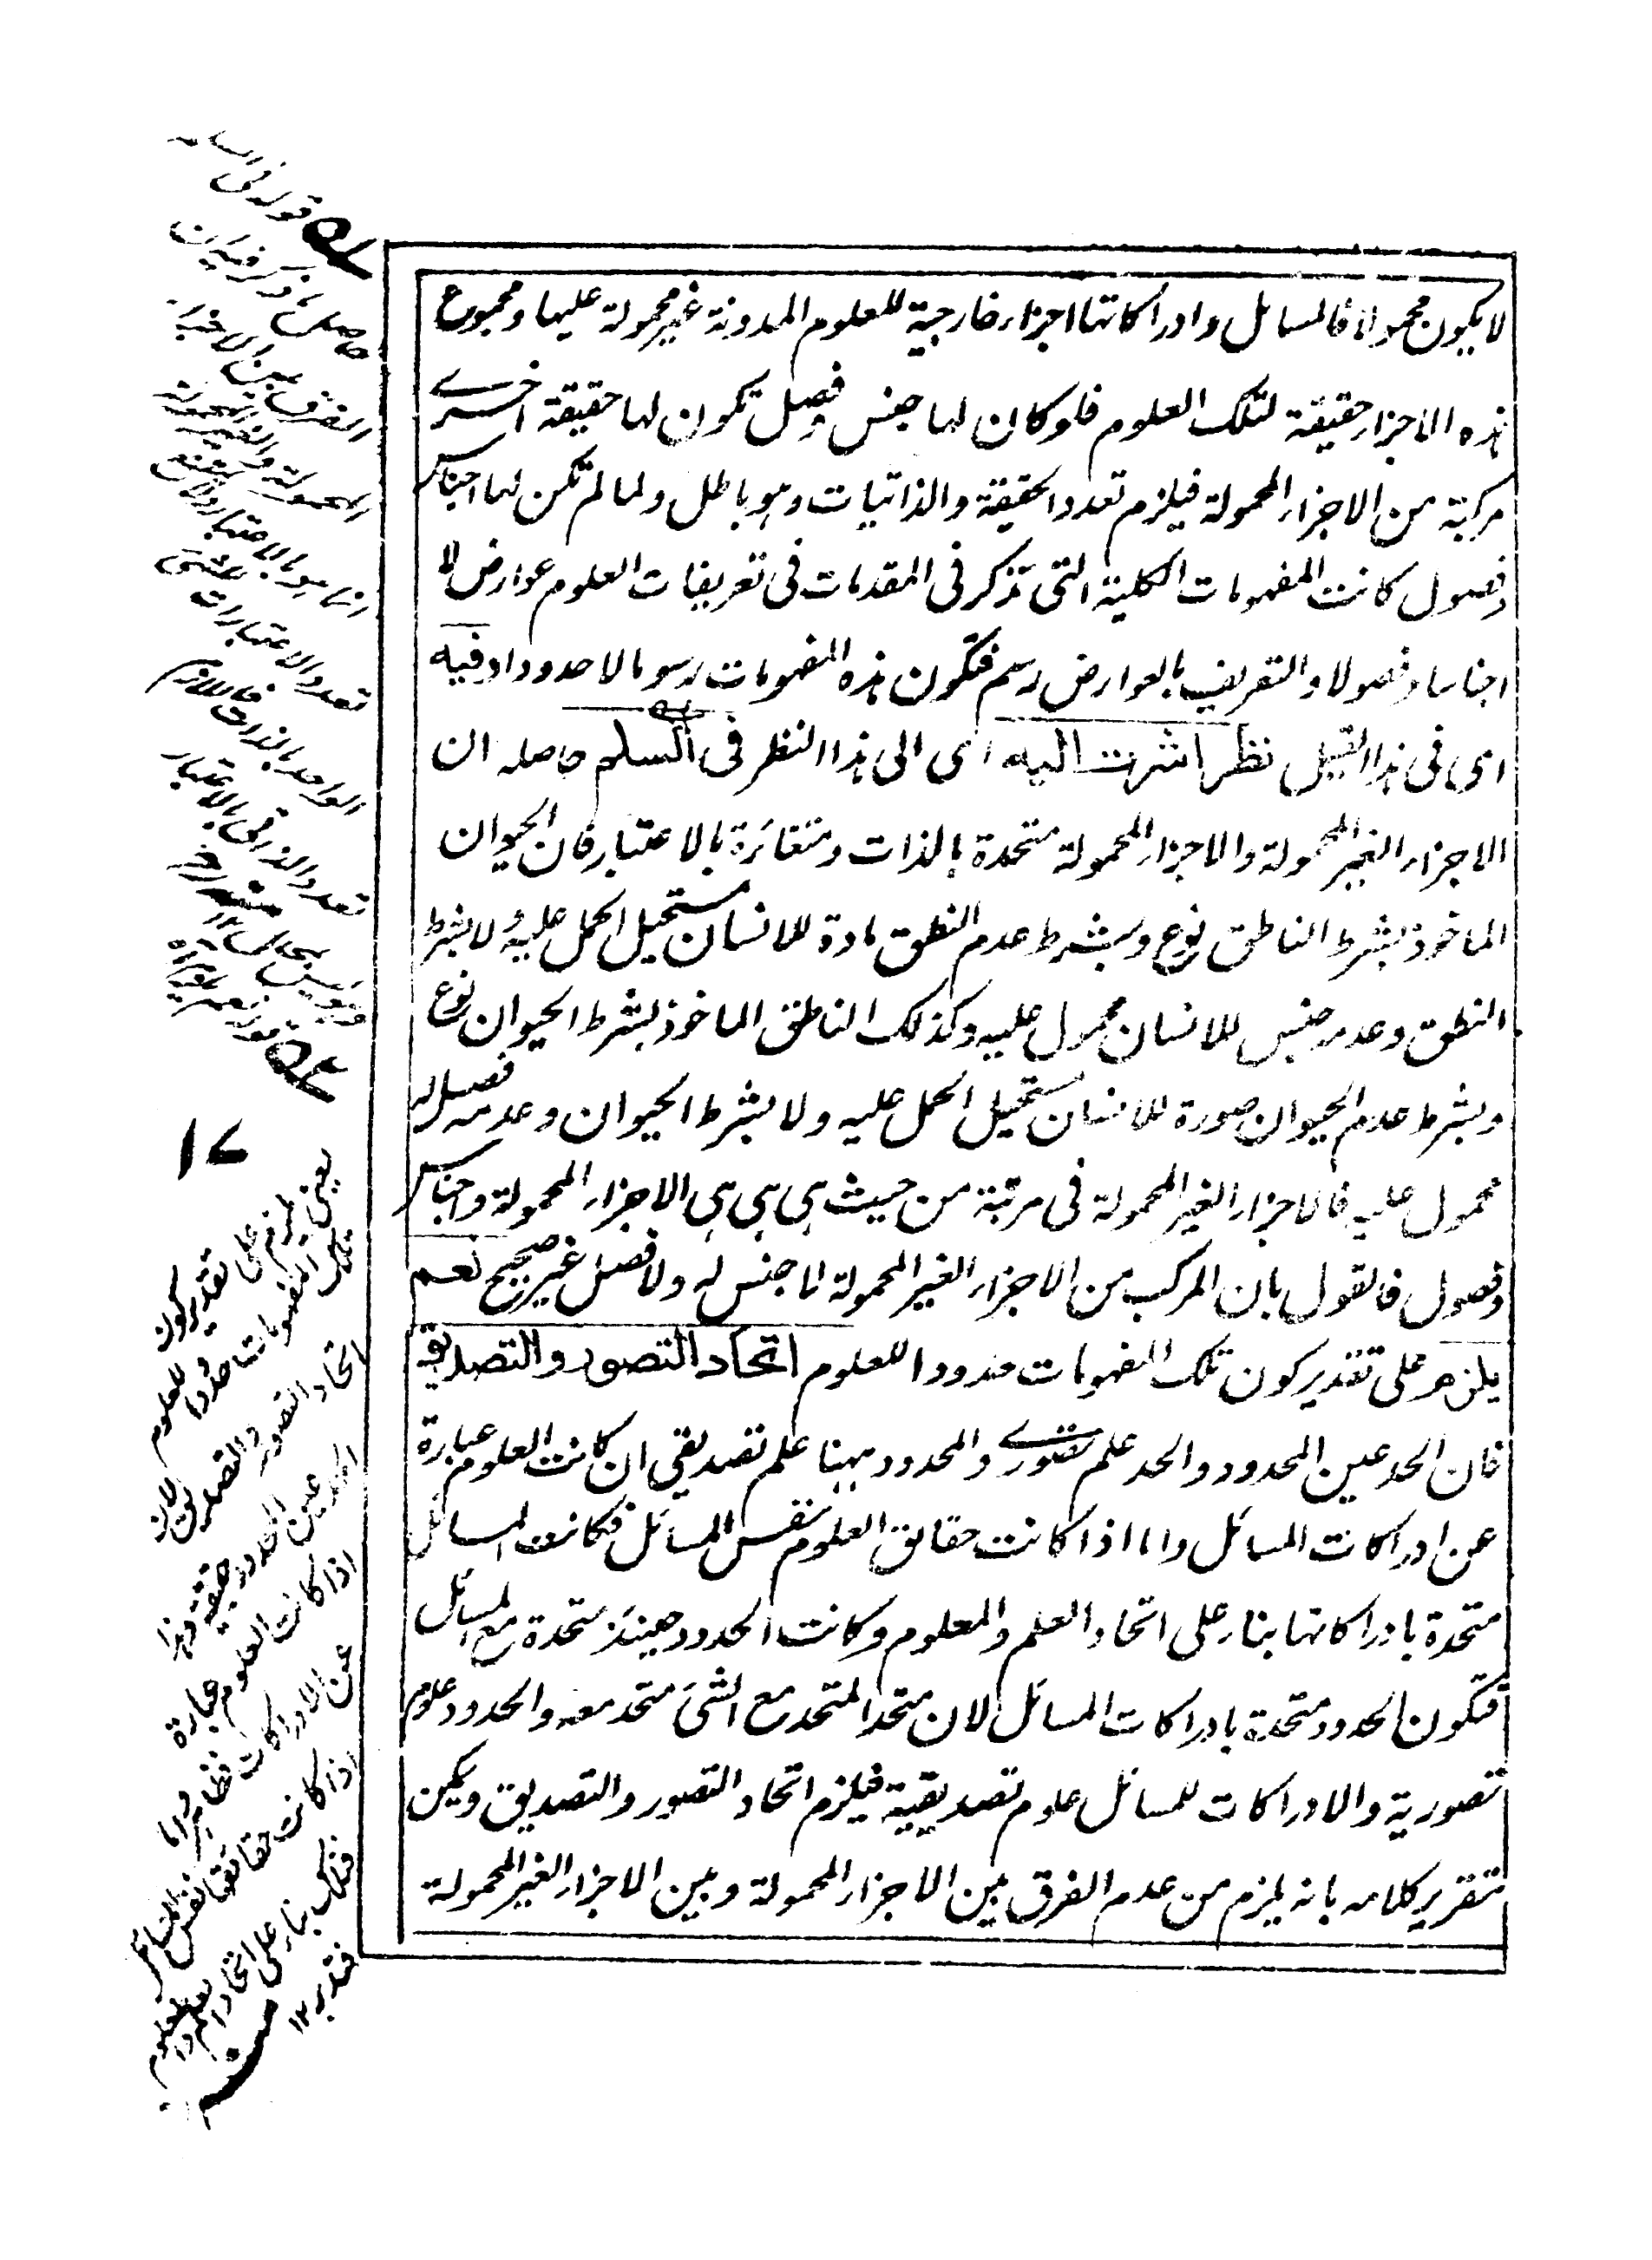 لا يكون محمولا فالمسائل وادراكاتها اجزاء خارجية للعلوم المدونة غير محمولة عليها ومجموع
هذه الاجزاء حقيقة لتلك العلوم فلو كان لها جنس وفصل تكون لها حقيقة اخرے
مركبة من الاجزاء المحمولة فيلزم تعدد الحقيقة والذاتيات وهو باطل ولما لم تكن لها اجناس
وفصول كانت المفهومات الكلية التى تذكر فى المقدمات فى تعريفات العلوم عوارض لا
اجناسا وفصولا والتعريف بالعوارض رسم فتكون هذه المفهومات رسوما لا حدودا وفيه
اى فى هذا القيل نظر اشرت اليه اى الى هذا النظر فى السلم حاصله ان
الاجزاء الغير المحمولة والاجزاء المحمولة متحدة بالذات ومتغائرة بالاعتبار فان الحيوان
الماخوذ بشرط الناطق نوع وبشرط عدم النطق مادة للانسان مستحيل الحمل عليه ولا بشرط
النطق وعدمه جنس للانسان محمول عليه وكذلك الناطق الماخوذ بشرط الحيوان نوع
وبشرط عدم الحيوان صورة للانسان مستحيل الحمل عليه ولا بشرط الحيوان وعدمه فصل له
محمول عليه فالاجزاء الغير المحمولة فى مرتبة من حيث هى هى هى الاجزاء المحمولة واجناس
وفصول فالقول بان المركب من الاجزاء الغير المحمولة لا جنس له ولا فصل غير صحيح نعم
يلزم على تقدير كون تلك المفهومات حدودا للعلوم اتحاد التصور والتصديق
فان الحد عين المحدود والحد علم تصورے والمحدود ههنا علم تصديقى ان كانت العلوم عبارة
عن ادراكات المسائل واما اذا كانت حقائق العلوم نفس المسائل فكانت المسائل
متحدة بادراكاتها بناء على اتحاد العلم والمعلوم وكانت الحدود حينئذ متحدة مع المسائل
فتكون الحدود متحدة بادراكات المسائل لان متحد المتحد مع الشئ متحد معه والحدود علوم
تصورية والادراكات للمسائل علوم تصديقية فيلزم اتحاد التصور والتصديق ويمكن
تقرير كلامه بانه يلزم من عدم الفرق بين الاجزاء المحمولة وبين الاجزاء الغير المحمولة
قوله فى السلم
حاصله ما ذكر فيه ان
الفرق بين الاجزاء
المحمولة والغير المحمولة
انما هو بالاعتبار ولا يمتنع
تعدد الاعتبارات لشئ
الواحد بالذات فاللازم
تعدد الذاتى بالاعتبار
وليس بمحال ١٢
قوله نعم يلزم
١٢
يعنى يلزم على تقدير كون
تلك المفهومات حدودا للعلوم
اتحاد التصور والتصديق لان
الحد عين المحدود حقيقة وهذا
اذا كانت العلوم عبارة
عن الادراكات فظاهر واما
اذا كانت حقائقها نفس المسائل
فذلك بناء على اتحاد العلم والمعلوم
فتدبر ١٢
منه